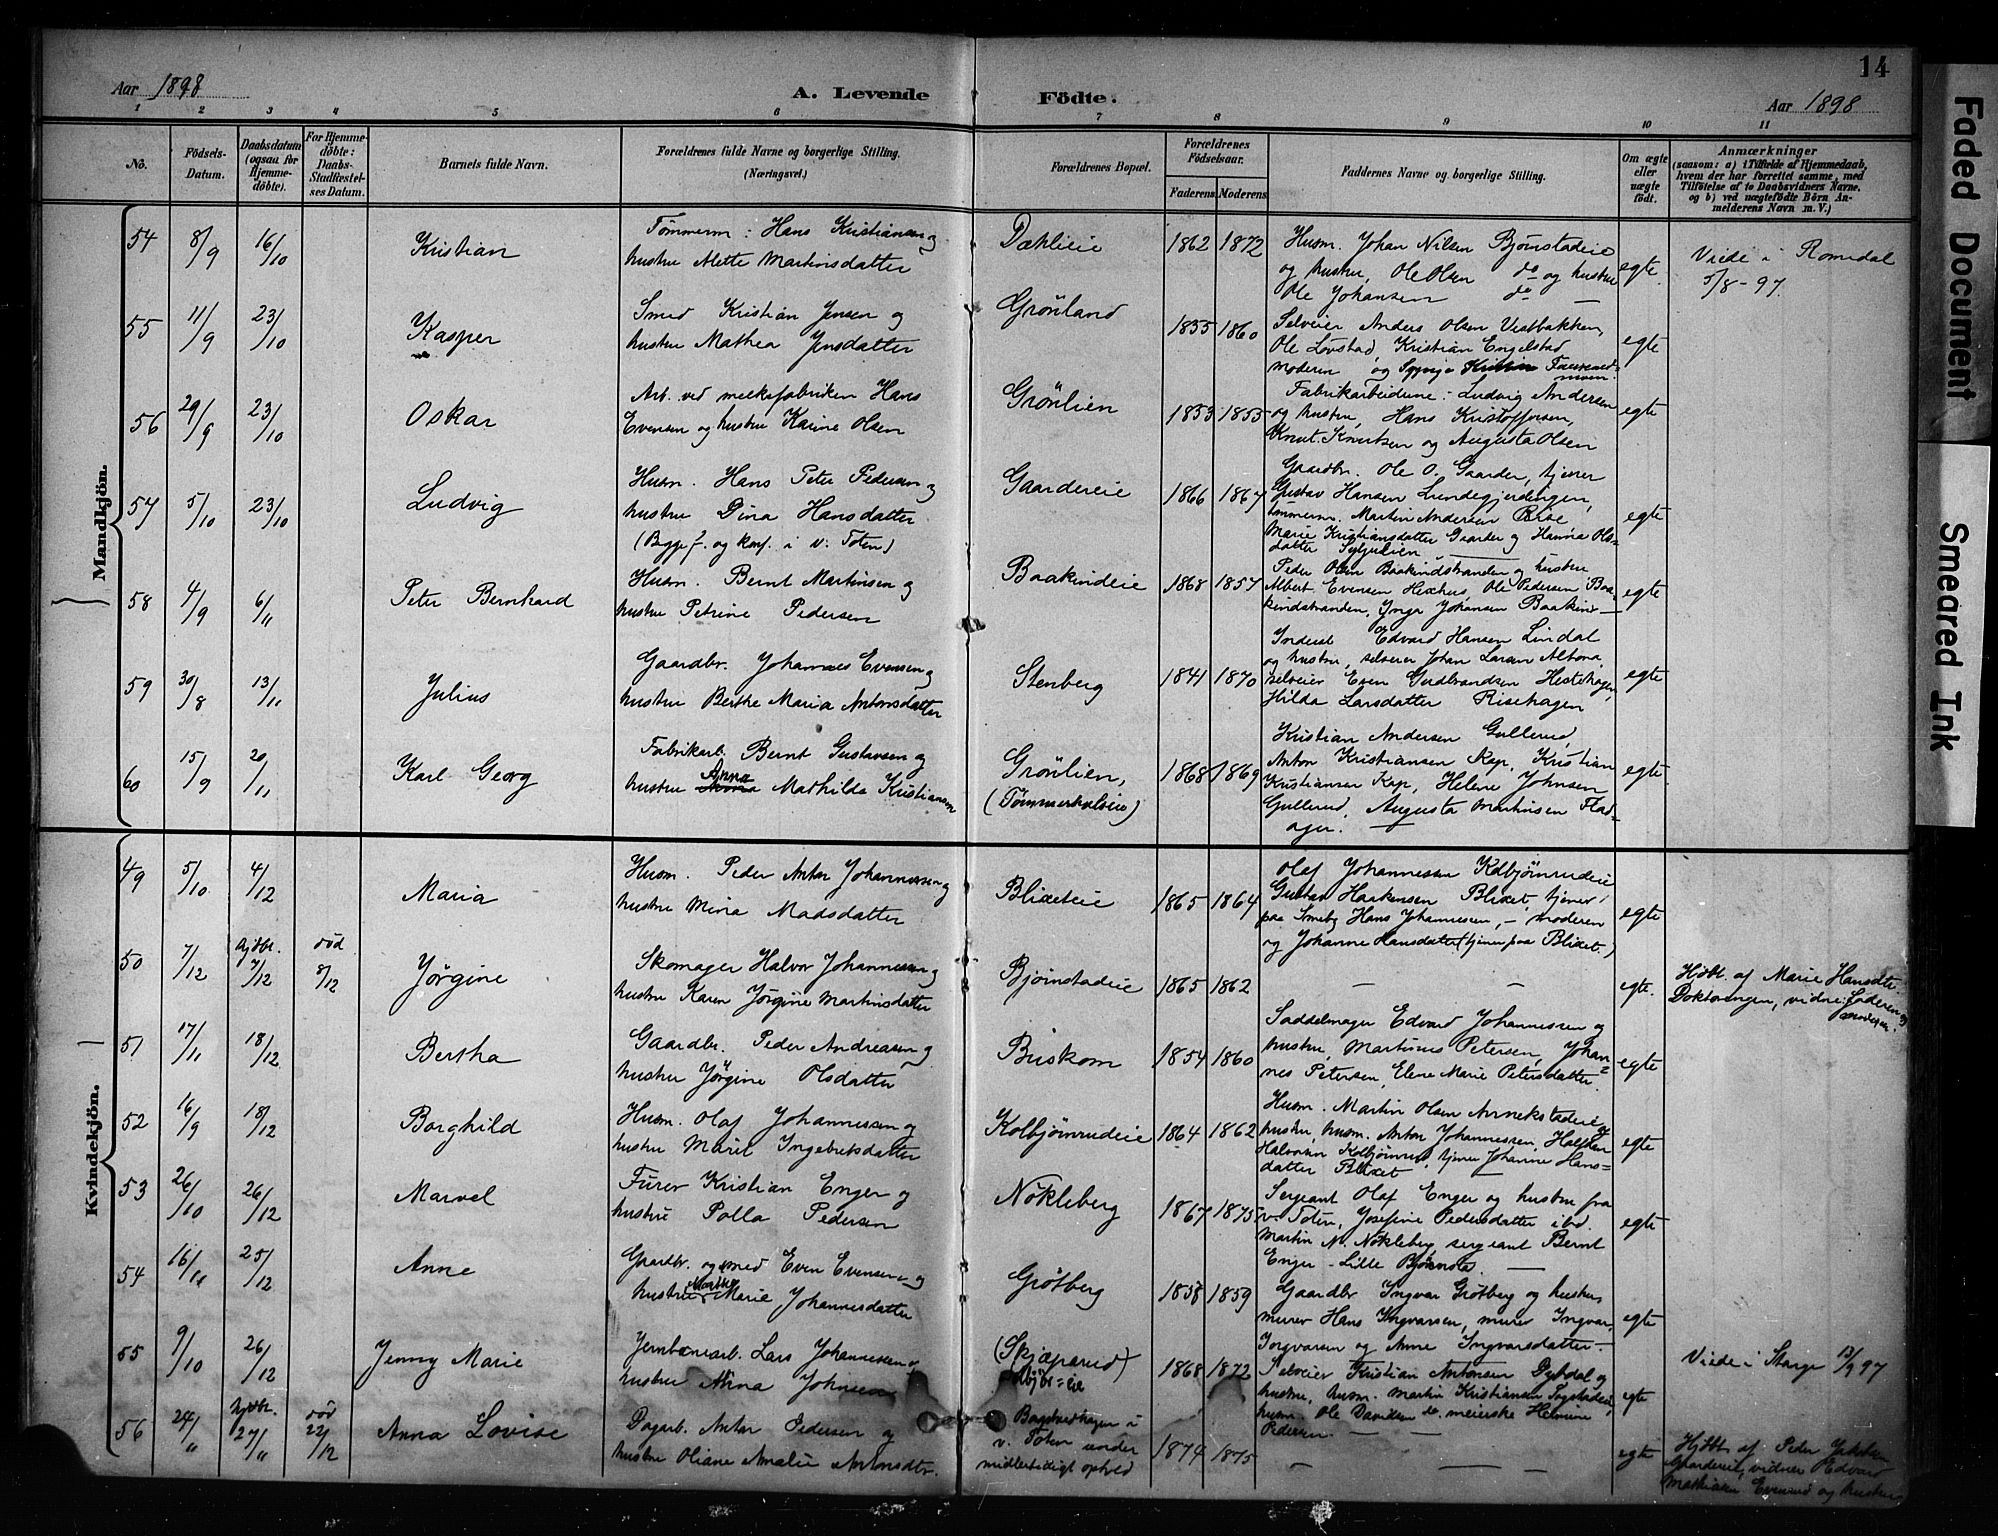 14
Aar 1898
A. Levende Födte.
Aar 1898
1 2 3 4 5 6 7 8 9 10 11
Nô.
Födsels-Datum.
Daabsdatum (ogsaa for Hjemmedöbte).
For Hjemmedöbte: Daabs-Stadfæstelses Datum.
Barnets fulde Navn.
Forældrenes fulde Navne og borgerlige Stilling. (Næringsvei.)
Forældrenes Bopæl.
Forældrenes Födselsaar.
Faderens Moderens
Faddernes Navne og borgerlige Stilling.
Om ægte eller uægte födt.
Anmærkninger
(saasom: a) i Tilfælde af Hjemmedaab, hvem der har forrettet samme, med Tilföielse af to Daabsvidners Navne, og b) ved uægtefödte Börn Anmelderens Navn m. V.)
Mandkjön.
54 8/9 16/10 Kristian
Tømmerm: Hans Kristiansen og
hustru Alette Martinsdatter
Dæhlieie 1862 1872
Husm. Johan Nilsen Bjønstadeie
og hustru, Ole Olsen do og hustru
Ole Johansen do —
egte.
Viede i Romedal
5/8-97.
55 11/9 23/10 Kasper
Smed Kristian Jensen og
hustru Mathea Jensdatter
Grönland 1855 1860
Selveier Anders Olsen Vestbakken,
Ole Lovstad, Kristian Engelstad
moderen og
egte
56 29/9 23/10 Oskar
Arb. ved melkefabriken Hans
Evensen og hustru Karine Olsen
Grönlien 1853 1855
Fabrikarbeiderne: Ludvig Andersen
og hustru, Hans Kristoffersen,
Knut Knutsen og Augusta Olsen
egte
57 5/10 23/10 Ludvig
Husm. Hans Peter Pedersen og
hustru Dina Hansdatter
(Begge f. og konf. i v. Toten)
Gaardereie 1866 1867
Gaardbr. Ole O. Gaarder, tjener
Gustav Hansen Lundegjerdingen,
tømmerm. Martin Andersen Brise
Marie Kristiansdatter Gaarder og Hanna Ols-
datter
egte
58 4/9 6/11 Peter Bernhard
Husm. Bernt Martinsen og
hustru Petrine Pedersen
Baakindeie 1868 1857
Peder Olsen Baakindstranden og hustru
Albert Evensen Hexhus, Ole Pedersen Baa-
kindstranden, Inga Johansen Baakind —
egte
59 30/8 13/11 Julius
Gaardbr. Johannes Evensen og
hustru Berthe Maria Antonsdatter
Stenberg 1841 1870
Inderst Edvard Hansen Lindal
og hustru, selveier Johan Larsen Alhora,
selveier Even Gudbrandsen Hestehagen,
Hilda Larsdatter Risehagen
egte
60 15/9 20/11 Karl Georg
Fabrikarb. Bernt Gustavsen og
hustru Anna Mathilda Kristiansen
Grönlien,
(Tømmerholeie) 1868 1869
Kristian Andersen Gullerud,
Anton Kristiansen Kap, Kristian
Kristiansen Kap, Helene Johnsen
Gullerud, Augusta Martinsen Flad-
ager. —
egte
Kvindekjön.
49 5/10 4/12 Maria
Husm. Peder Anton Johannessen og
hustru Mina Madsdatter
Blixeteie 1865 1864
Olaf Johannessen Kolbjønrudeie
Gustav Haakensen Blixet, tjener
paa Smeby Hans Johannesen, — moderen
og Johanne Hansdatter (tjener paa Blixet.)
egte
50 7/12 hjdbt. 7/12 död 8/12 Jørgine
Skomager Halvor Johannessen og
hustru Karen Jørgine Martinsdatter
Bjørnstadeie 1865 1862
— —
egte.
Hjdbt. af Marie Hansdtr.
Doktorengen, vidne: faderen og
moderen.
51 17/11 18/12 Bertha
Gaardbr. Peder Andreasen og
hustru Jørgine Olsdatter
Buskom 1854 1860
Saddelmager Edvard Johannessen og
hustru, Martinus Petersen, Johan=
nes Petersen, Elene Marie Petersdatter.
egte
52 16/9 18/12 Borghild
Husm. Olaf Johannessen og
hustru Marit Ingebretsdatter
Kolbjønrudeie 1864 1862
Husm. Martin Olsen Annekstadeie og
hustru, husm. Anton Johannessen, Halfdan
Halvorsen Kolbjønrud, tjener Johanne Hans=
datter Blixet —
egte
53 26/10 26/12 Marvel
Furer Kristian Enger og
hustru Polla Pedersen
Nökleberg 1867 1875
Sergeant Olaf Enger og hustru fra
v. Toten, Josefine Pedersdatter ibd.
Martin N. Nökleberg, sergeant Bernt
Enger - Lille —
egte
54 16/11 25/12 Anne
Gaardbr. og smed Even Evensen og
hustru Marthe Marie Johannesdatter
Grötberg 1858 1859
Gaardbr Ingvar Grötberg og hustru,
murer Hans Ingvarsen, murer Ingvar
Ingvarsen og Anne Ingvarsdatter. —
egte
55 9/10 26/12 Jenny Marie
Jernbanearb. Lars Johannessen og
hustru Anna Johnsen
(Skjæparud) 1868 1872
Selveier Kristian Antonsen Dybdal og
hustru, husm. Martin Kristiansen
husm. Ole Davidsen do. meierske Helmine
Pedersen. — —
egte
Viede i Stange 12/9 97
56 24/11 hjdbt. 27/11 död 22/12 Anna Lovise
Dagarb. Anton Pedersen og
hustru Oliane Amalie Antonsdtr.
v. Toten under
midlertidigt ophold 1874 1875
— — —
egte
Hjdbt af Peder
Gaardereie, vidner Edvard
Mathisen Evenrud og hustru
Faded Document
Smeared Ink